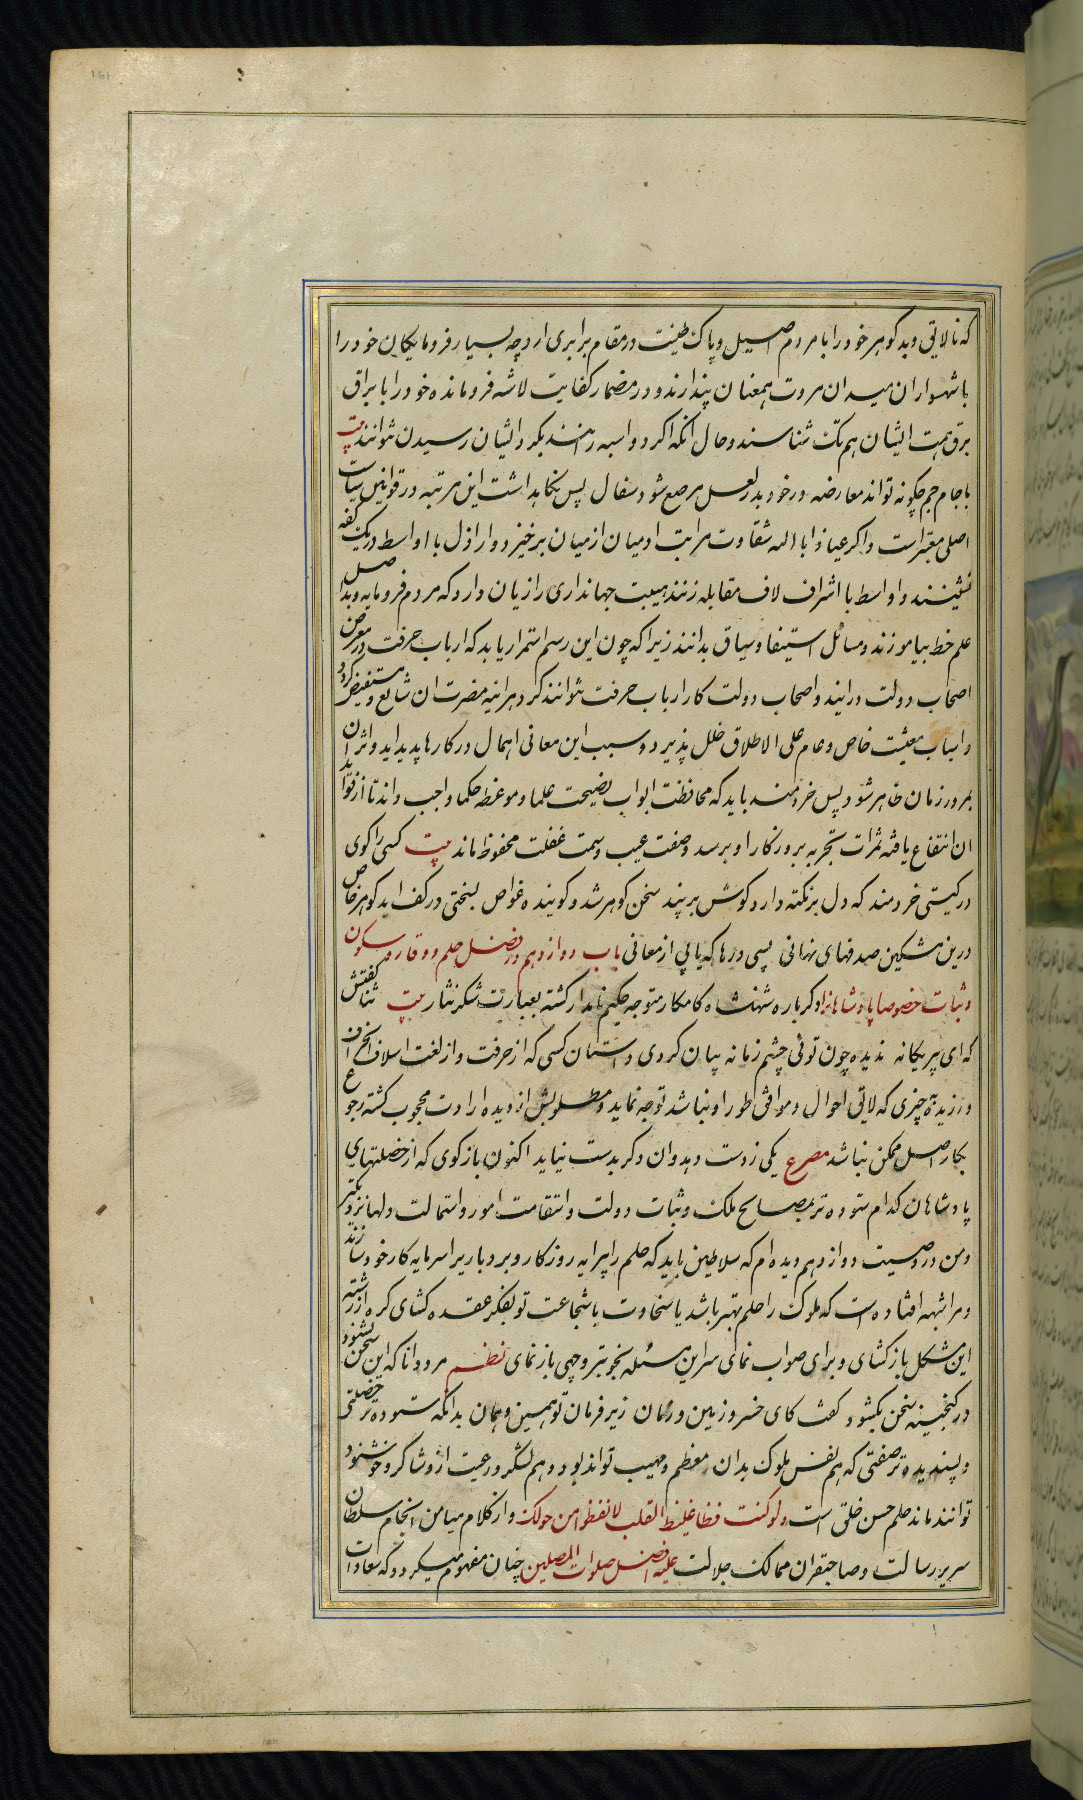 161
که نالایق و بدگوهر خود را با مردم اصیل و پاک طینت در مقام برابری ارد چه بسیار فرومایگان خود را
با شهسواران میدان مروت همعنان پندارند و در مضمار کفایت لاشه فرومانده خود را با براق
برق همت ایشان هم تک شناسند و حال انکه اگر دو اسبه رانند بگرد ایشان رسیدن نتوانند بیت
با جام جم چگونه تواند معارضه ور خود بدر و لعل مرصع شود سفال پس نگاهداشت این مرتبه در قوانین سیاست
اصلی معتبر است و اگر عیاذا بالله تفاوت مراتب ادمیان از میان برخیزد و اراذل با اواسط در یک کفه
نشینند و اواسط با اشراف لاف مقابله زنند هیبت جهانداری را زیان دارد که مردم فرومایه و بداصل
علم خط بیاموزند و مسائل استیفا و سیاق بدانند زیرا که چون این رسم استمرار یابد که ارباب حرفت در معرض
اصحاب دولت درایند و اصحاب دولت کار ارباب حرفت نتوانند کرد هراینه مضرت ان شایع و مستفیض کردد
و اسباب معیشت خاص و عام علی الاطلاق خلل پذیرد و سبب این معانی اهمال در کارها پدید اید و اثر ان
بمرور زمان ظاهر شود پس خردمند باید که محافظت ابواب نصیحت علما و موعظه حکما واجب داند تا از فواید
ان انتفاع یافته ثمرات تجربه بروزکار او برسد و صفت عیب و سمت غفلت محفوظ ماند بیت کسی را کوی
در کیتی خردمند که دل بر نکته دارد کوش بر پند سخن کوهر شد و کوینده غواص بسختی در کف اید کوهر خاص
درین مشکین صدفهای نهانی بسی درها که یابی از معانی باب دوازدهم در فضل حلم و وقار و سکون
و ثبات خصوصا پادشاهانرا دکر باره شهنشاه کامکار متوجه حکیم نامدار کشته بعبارت شکرنثار بیت ثنا کفتش
که ای پیر یکانه ندیده چون توئی چشم زمانه بیان کردی داستان کسی که از حرفت و از لغت اسلاف انحراف
ورزیده بچیزی که لایق احوال و موافق اطوار او نباشد توجه نماید و مطلوبش از دیده ارادت محجوب کشته رجوع
بکار اصل ممکن نباشد مصرع یکی ز دست دهد وان دکر بدست نیاید اکنون بازکوی که از خصلتهای
پادشاهان کدام ستوده تر بمصالح ملک و ثبات دولت و استقامت امور و استمالت دلها نزدیکتر
و من در وصیت دوازدهم دیده ام که سلاطین باید که حلم را پیرایه روزکار و بردباری را سرمایه کار خود سازند
و مرا شبهه افتاده است که ملوک را حلم بهتر باشد یا سخاوت یا شجاعت تو بفکر عقده کشای کره از رشته
این مشکل بازکشای و برای صواب نمای سر این مسئله بخوبتر وجهی بازنمای نظم مرد دانا که این سخن بشنود
در کنجینه سخن بکشود کفت کای خسرو زمین و زمان زیر فرمان تو همین و همان بدانکه ستوده تر خصلتی
و پسندیده تر صفتی که هم نفس ملوک بدان معظم و مهیب تواند بود و هم لشکر و رعیت ازو شاکر و خوشنود
توانند ماند حلم و حسن خلقی است ولو کنت فظا غلیظ القلب لانفضوا من حولک و از کلام میامن انجام سلطان
سریر رسالت و صاحبقران ممالک جلالت علیه افضل صلوات المصلین چنان مفهوم میکردد که سعادت